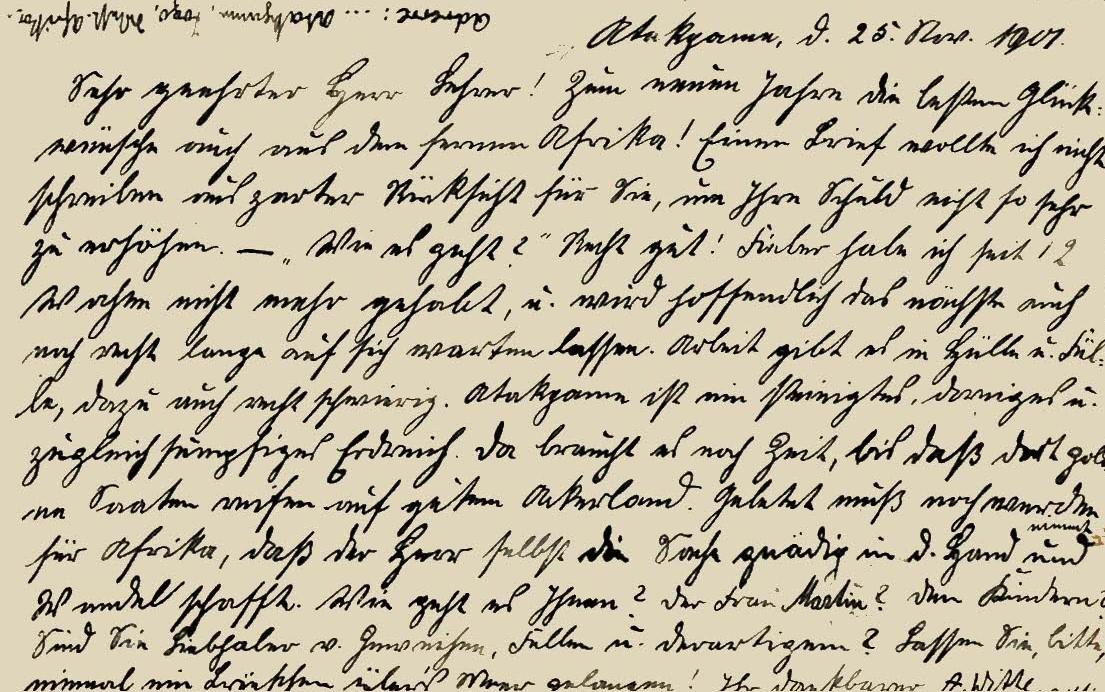 Adresse: ... Atakpame, Togo, West-Afrika.
Atakpame, d. 25. Nov. 1901.
Sehr geehrter Herr Lehrer! Zum neuen Jahre die besten Glück-
wünsche auch aus dem fernen Afrika! Einen Brief wollte ich nicht
schreiben aus zarter Rücksicht für Sie, um Ihre Schuld nicht so sehr
zu erhöhen. — „Wie es geht?" Recht gut! Fieber habe ich seit 12
Wochen nicht mehr gehabt, u. wird hoffendlich das nächste auch
noch recht lange auf sich warten lassen. Arbeit gibt es in Hülle u. Fül-
le, dazu auch recht schwierig. Atakpame ist ein steinigtes, dorniges u.
zugleich sumpfiges Erdreich. Da braucht es noch Zeit, bis daß dort gold
ne Saaten reifen auf gutem Ackerland. Gebetet muß noch werden
für Afrika, daß der Herr selbst die Sache gnädig in d. Hand nimmt und
Wandel schafft. Wie geht es Ihnen? Der Frau Martin? den Kindern?
Sind Sie Liebhaber v. Geweihen, Fellen u. derartigem? Lassen Sie, bitte,
einmal ein Briefchen über's Meer gelangen! Ihr dankbarer A. Witte